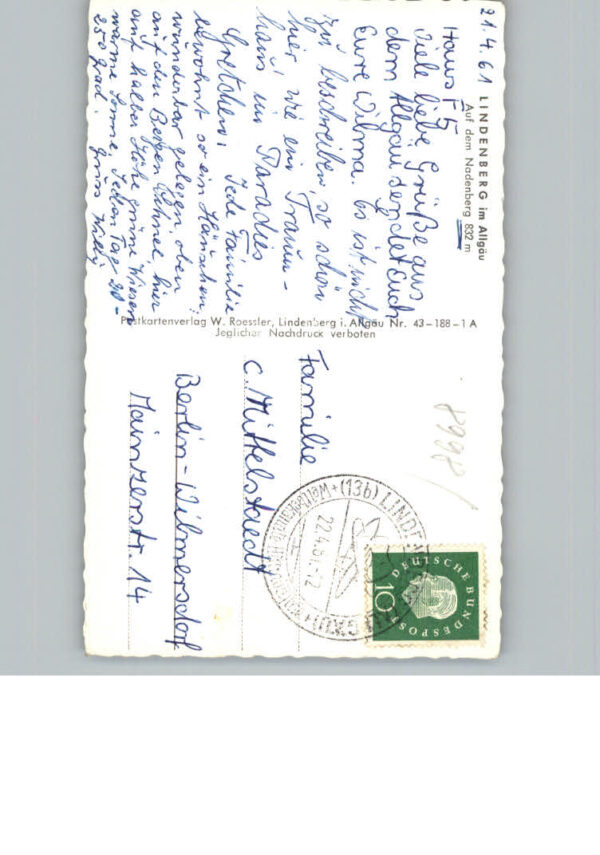 21.4.61
LINDENBERG im Allgäu
Auf dem Nadenberg 832 m
Haus F 5
Viele liebe Grüße aus
dem Allgäu sendet Euch
Eure Wilma. Es ist nicht
zu beschreiben, so schön
hier, wie ein Traum-
haus im Paradies
Gretchen! Jede Familie
bewohnt so ein Häuschen.
wunderbar gelegen, oben
auf den Bergen Schnee, hier
auf halber Höhe grüne Wiesen
warme Sonne, Jeden Tag 20-
250 grad. Gruss Willy
Postkartenverlag W. Roessler, Lindenberg i. Allgäu Nr. 43-188-1 A
Jeglicher Nachdruck verboten
8998
(13b) LINDENBERG
22.4.61-12
DEUTSCHE BUNDESPOST
10
Familie
C. Mittelstaedt
Berlin-Wilmersdorf
Mainzerstr. 14